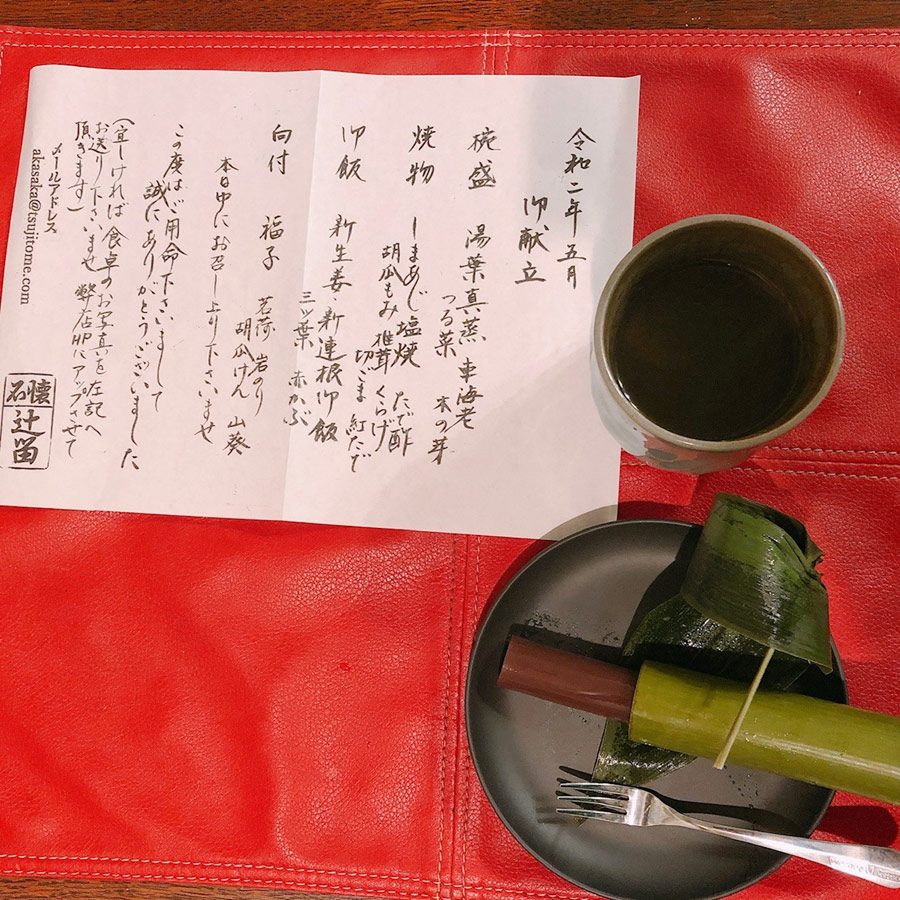 令和二年五月
御献立
椀盛 湯葉真蒸 車海老
つる菜 木の芽
焼物 しまあじ塩焼 たで酢
胡瓜もみ 椎茸 くらげ
切ごま 紅たで
御飯 新生姜・新連根御飯
三ッ葉 赤かぶ
向付 福子 茗荷 岩のり
胡瓜けん 山葵
本日中にお召し上り下さいませ
この度はご用命下さいまして
誠にありがとうございました
(宜しければ食卓のお写真を左記へ
お送り下さいませ 弊店HPにアップさせて
頂きます)
メールアドレス
akasaka@tsujitome.com
懐石
辻留